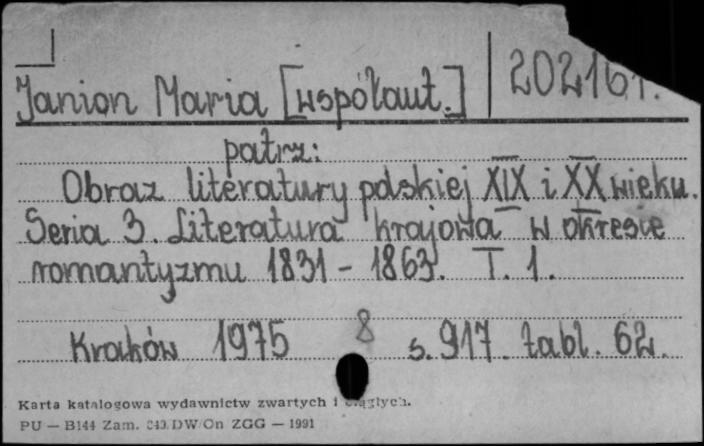 Janion Maria [współaut.] 202161.
patrz:
Obraz literatury polskiej XIX i XX wieku.
Seria 3. Literatura krajowa w okresie
romantyzmu 1831 - 1863. T. 1.
Kraków 1975 8 s. 917. tabl. 62.
Karta katalogowa wydawnictw zwartych i ciągłych.
PU — B144 Zam. DW/On ZGG — 1991